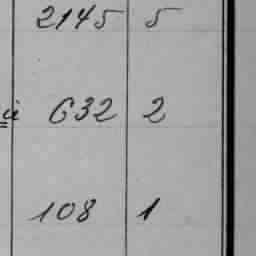 2145 5
632 2
108 1